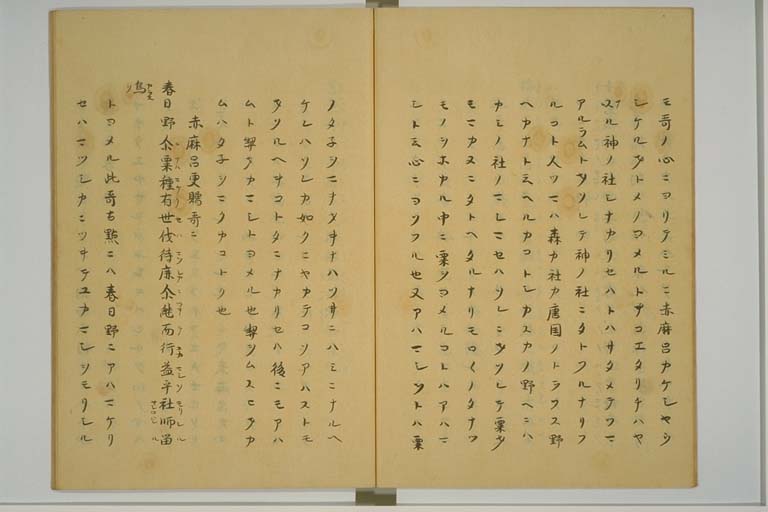 モ哥ノ心ニヨリテミルニ赤麻呂カケシヤシ
シケルヲトメノヨメルトキコエタリチハヤ
スル神ノ社シナカリセハトハサタメテフマ
アルラムトウツシテ神ノ社ニタトフルナリフ
ルコト人ツマハ森カ社カ唐国ノトラフス野
ヘカナトミヘルカコトシカスカノ野ヘニハ
カミノ社ノマシマセハソレニウツシテ粟ヲ
モマカヌニタトヘタルナリモロ〱ノタナツ
モノシホカル中ニ粟ヲヨメルコトハアハマ
シトミ心ニヨソフル也又アハマシソトハ粟
ノタ子シマナタチナハソ井ニハミニナルヘ
ケレハソレカ如クニヤカテコソアハストモ
ウツルヘキコトタニナカリセハ後ニモアハ
ムト契ヲカマシトヨメル也契ヲムスヒヲカ
ムハタ子シマクカコトク也
赤麻呂更贈哥ニ
春日野尓粟種有世伐待鹿尓継而行益乎社師留
烏
トヨメル此哥古點ニハ春日野ニアハマケリ
セハマツシカニツキテユカマシシモリシル